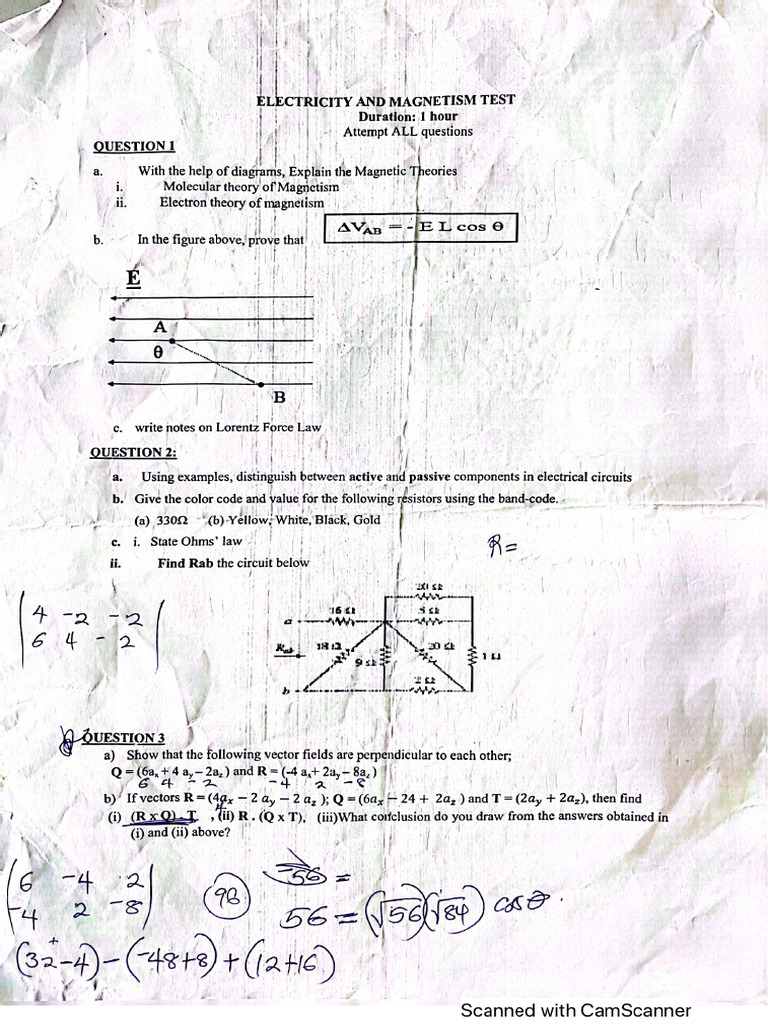 ELECTRICITY AND MAGNETISM TEST
Duration: 1 hour
Attempt ALL questions
QUESTION 1
a. With the help of diagrams, Explain the Magnetic Theories
i. Molecular theory of Magnetism
ii. Electron theory of magnetism
b. In the figure above, prove that ΔV_AB = - E L cos θ
E
A
θ
B
c. write notes on Lorentz Force Law
QUESTION 2:
a. Using examples, distinguish between active and passive components in electrical circuits
b. Give the color code and value for the following resistors using the band-code.
(a) 330Ω (b) Yellow, White, Black, Gold
c. i. State Ohms' law
R =
ii. Find Rab the circuit below
20 Ω
16 Ω 5 Ω
a
4 -2 -2
6 4 - 2
Rab 18 Ω 20 Ω
9 Ω 1 Ω
2 Ω
b
QUESTION 3
a) Show that the following vector fields are perpendicular to each other;
Q = (6ax + 4 ay – 2az ) and R = (-4 ax+ 2ay – 8az )
6 4 - 2 -4 2 -8
b) If vectors R = (4ax – 2 ay – 2 az ); Q = (6ax – 24 + 2az ) and T = (2ay + 2az), then find
(i) (R x Q) . T , (ii) R . (Q x T), (iii)What conclusion do you draw from the answers obtained in
(i) and (ii) above?
6 -4 2
-4 2 -8
96
-56 =
56 = (√56)(√84) cos θ.
(32 + - 4) - (-48+8) + (12+16)
Scanned with CamScanner